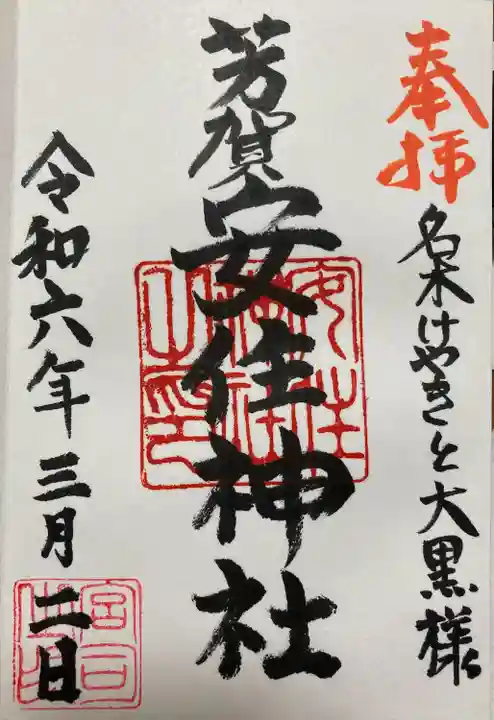 奉拝
名木けやきと大黒様
芳賀安住神社
安住神社之印
令和六年三月二日
宮司之印